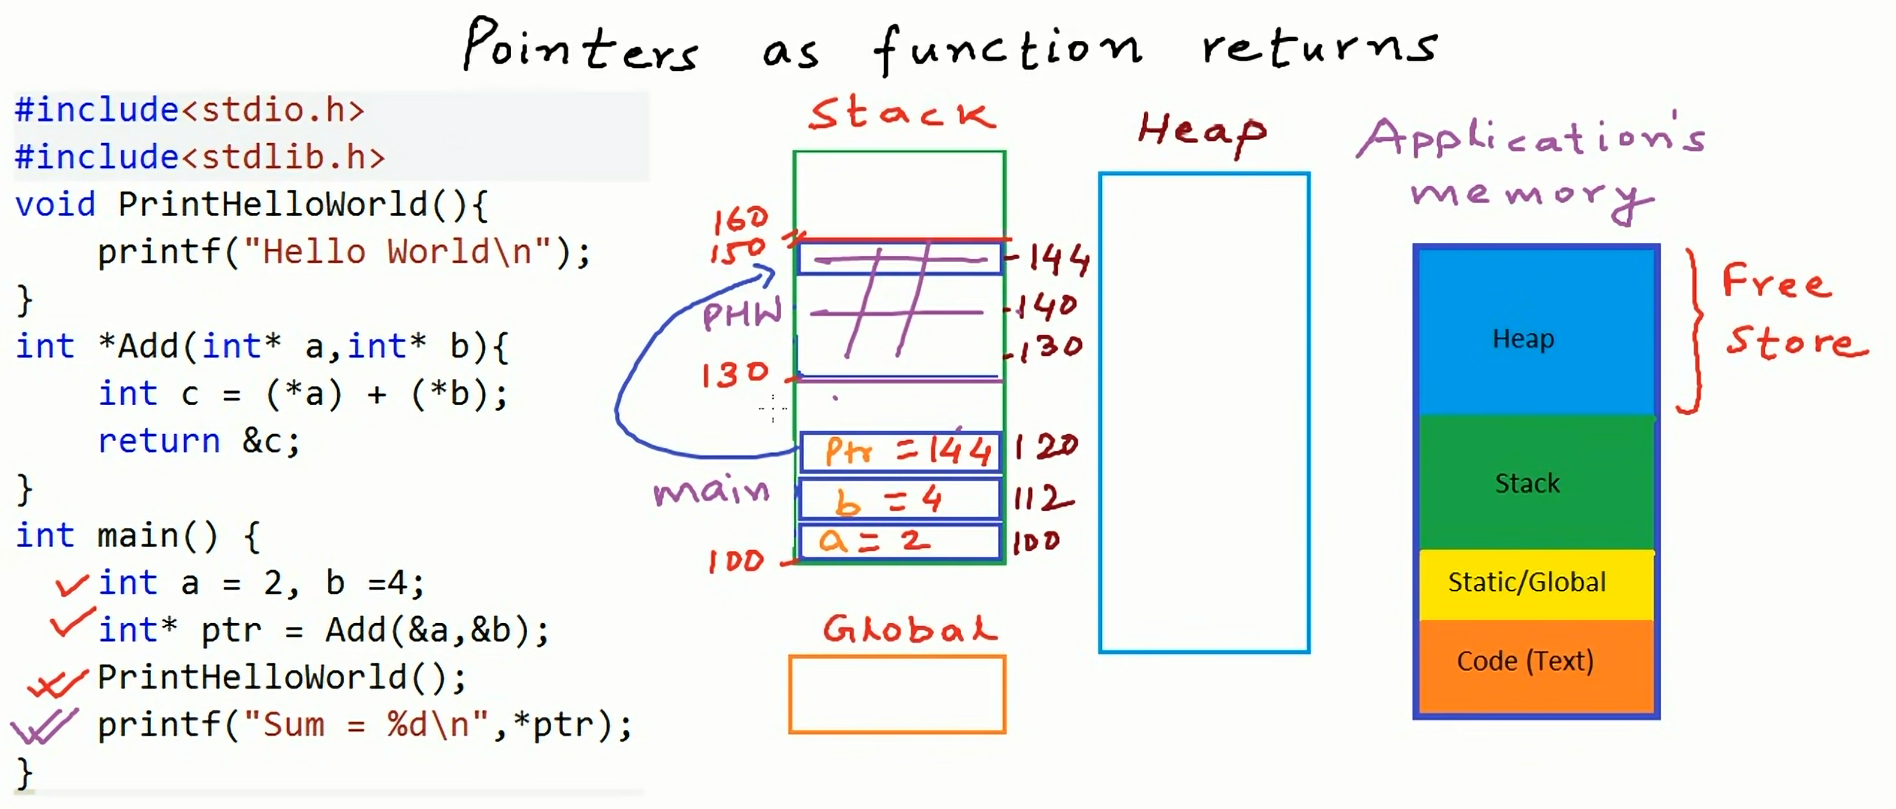 Pointers as function returns
#include<stdio.h>
#include<stdlib.h>
void PrintHelloWorld(){
    printf("Hello World\n");
}
int *Add(int* a,int* b){
    int c = (*a) + (*b);
    return &c;
}
int main() {
    int a = 2, b =4;
    int* ptr = Add(&a,&b);
    PrintHelloWorld();
    printf("Sum = %d\n",*ptr);
}
Stack
160
150
144
PHW
140
130
130
Ptr = 144
120
main
b = 4
112
a = 2
100
100
Global
Heap
Application's
memory
Heap
Stack
Static/Global
Code (Text)
Free
Store